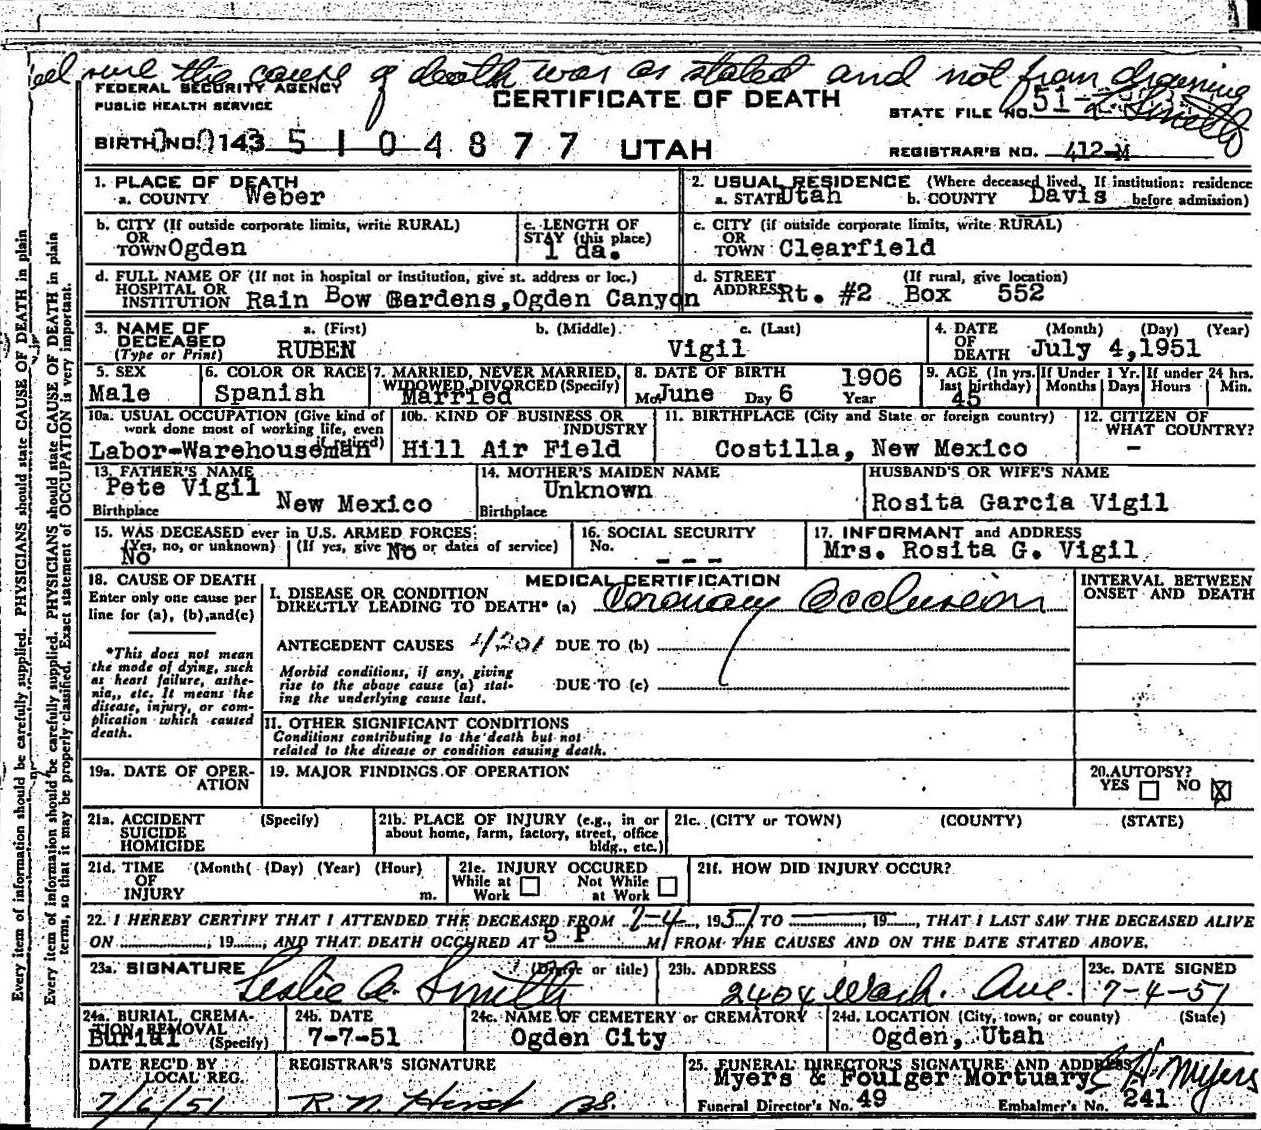 feel sure the cause of death was as stated and not from drowning
L Smith
FEDERAL SECURITY AGENCY
PUBLIC HEALTH SERVICE
CERTIFICATE OF DEATH
STATE FILE NO. 51-
BIRTH NO. 143 5 1 0 4 8 7 7 UTAH
REGISTRAR'S NO. 412-M
1. PLACE OF DEATH
a. COUNTY Weber
2. USUAL RESIDENCE (Where deceased lived. If institution: residence before admission)
a. STATE Utah b. COUNTY Davis
b. CITY (If outside corporate limits, write RURAL)
OR
TOWN Ogden
c. LENGTH OF
STAY (this place)
1 da.
c. CITY (if outside corporate limits, write RURAL)
OR
TOWN Clearfield
d. FULL NAME OF (If not in hospital or institution, give st. address or loc.)
HOSPITAL OR
INSTITUTION Rain Bow Gardens, Ogden Canyon
d. STREET (If rural, give location)
ADDRESS Rt. #2 Box 552
3. NAME OF a. (First) b. (Middle) c. (Last)
DECEASED
(Type or Print) RUBEN Vigil
4. DATE (Month) (Day) (Year)
OF
DEATH July 4,1951
5. SEX
Male
6. COLOR OR RACE
Spanish
7. MARRIED, NEVER MARRIED,
WIDOWED, DIVORCED (Specify)
Married
8. DATE OF BIRTH 1906
Mo. June Day 6 Year
9. AGE (In yrs. last birthday) If Under 1 Yr. If under 24 hrs.
45 Months Days Hours Min.
10a. USUAL OCCUPATION (Give kind of
work done most of working life, even
if retired)
Labor-Warehouseman
10b. KIND OF BUSINESS OR
INDUSTRY
Hill Air Field
11. BIRTHPLACE (City and State or foreign country)
Costilla, New Mexico
12. CITIZEN OF
WHAT COUNTRY?
-
13. FATHER'S NAME
Pete Vigil
Birthplace New Mexico
14. MOTHER'S MAIDEN NAME
Unknown
Birthplace
HUSBAND'S OR WIFE'S NAME
Rosita Garcia Vigil
15. WAS DECEASED ever in U.S. ARMED FORCES:
(Yes, no, or unknown) (If yes, give or dates of service)
No No
16. SOCIAL SECURITY
No.
- - -
17. INFORMANT and ADDRESS
Mrs. Rosita G. Vigil
18. CAUSE OF DEATH
Enter only one cause per
line for (a), (b), and (c)
*This does not mean
the mode of dying, such
as heart failure, asthe-
nia, etc. It means the
disease, injury, or com-
plication which caused
death.
MEDICAL CERTIFICATION
I. DISEASE OR CONDITION
DIRECTLY LEADING TO DEATH* (a) Coronary Occlusion
ANTECEDENT CAUSES 4201 DUE TO (b)
Morbid conditions, if any, giving
rise to the above cause (a) stat-
ing the underlying cause last.
DUE TO (c)
II. OTHER SIGNIFICANT CONDITIONS
Conditions contributing to the death but not
related to the disease or condition causing death.
INTERVAL BETWEEN
ONSET AND DEATH
19a. DATE OF OPER-
ATION
19. MAJOR FINDINGS OF OPERATION
20. AUTOPSY?
YES NO X
21a. ACCIDENT (Specify)
SUICIDE
HOMICIDE
21b. PLACE OF INJURY (e.g., in or
about home, farm, factory, street, office
bldg., etc.)
21c. (CITY or TOWN) (COUNTY) (STATE)
21d. TIME (Month( (Day) (Year) (Hour)
OF
INJURY m.
21e. INJURY OCCURED
While at Work Not While at Work
21f. HOW DID INJURY OCCUR?
22. I HEREBY CERTIFY THAT I ATTENDED THE DECEASED FROM 7-4, 1951 TO , 19 , THAT I LAST SAW THE DECEASED ALIVE
ON , 19 , AND THAT DEATH OCCURED AT 5 P M FROM THE CAUSES AND ON THE DATE STATED ABOVE.
23a. SIGNATURE (Degree or title)
Leslie A. Smith
23b. ADDRESS
2404 Wash. Ave.
23c. DATE SIGNED
7-4-51
24a. BURIAL, CREMA-
TION, REMOVAL
Burial (Specify)
24b. DATE
7-7-51
24c. NAME OF CEMETERY or CREMATORY
Ogden City
24d. LOCATION (City, town, or county) (State)
Ogden, Utah
DATE REC'D BY
LOCAL REG.
7/6/51
REGISTRAR'S SIGNATURE
25. FUNERAL DIRECTOR'S SIGNATURE AND ADDRESS
Myers & Foulger Mortuary E H. Myers
Funeral Director's No. 49 Embalmer's No. 241
Every item of information should be carefully supplied. PHYSICIANS should state CAUSE OF DEATH in plain
Every item of information should be carefully supplied. PHYSICIANS should state CAUSE OF DEATH in plain
terms, so that it may be properly classified. Exact statement of OCCUPATION is very important.